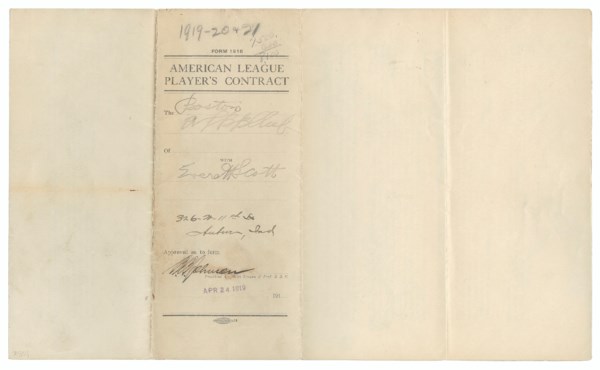 1919-20+21
FORM 1918
AMERICAN LEAGUE
PLAYER'S CONTRACT
The Boston
A L B B Club
Of
WITH
Everett Scott
Auburn, Ind
Approved as to form
B B Johnson
APR 24 1919